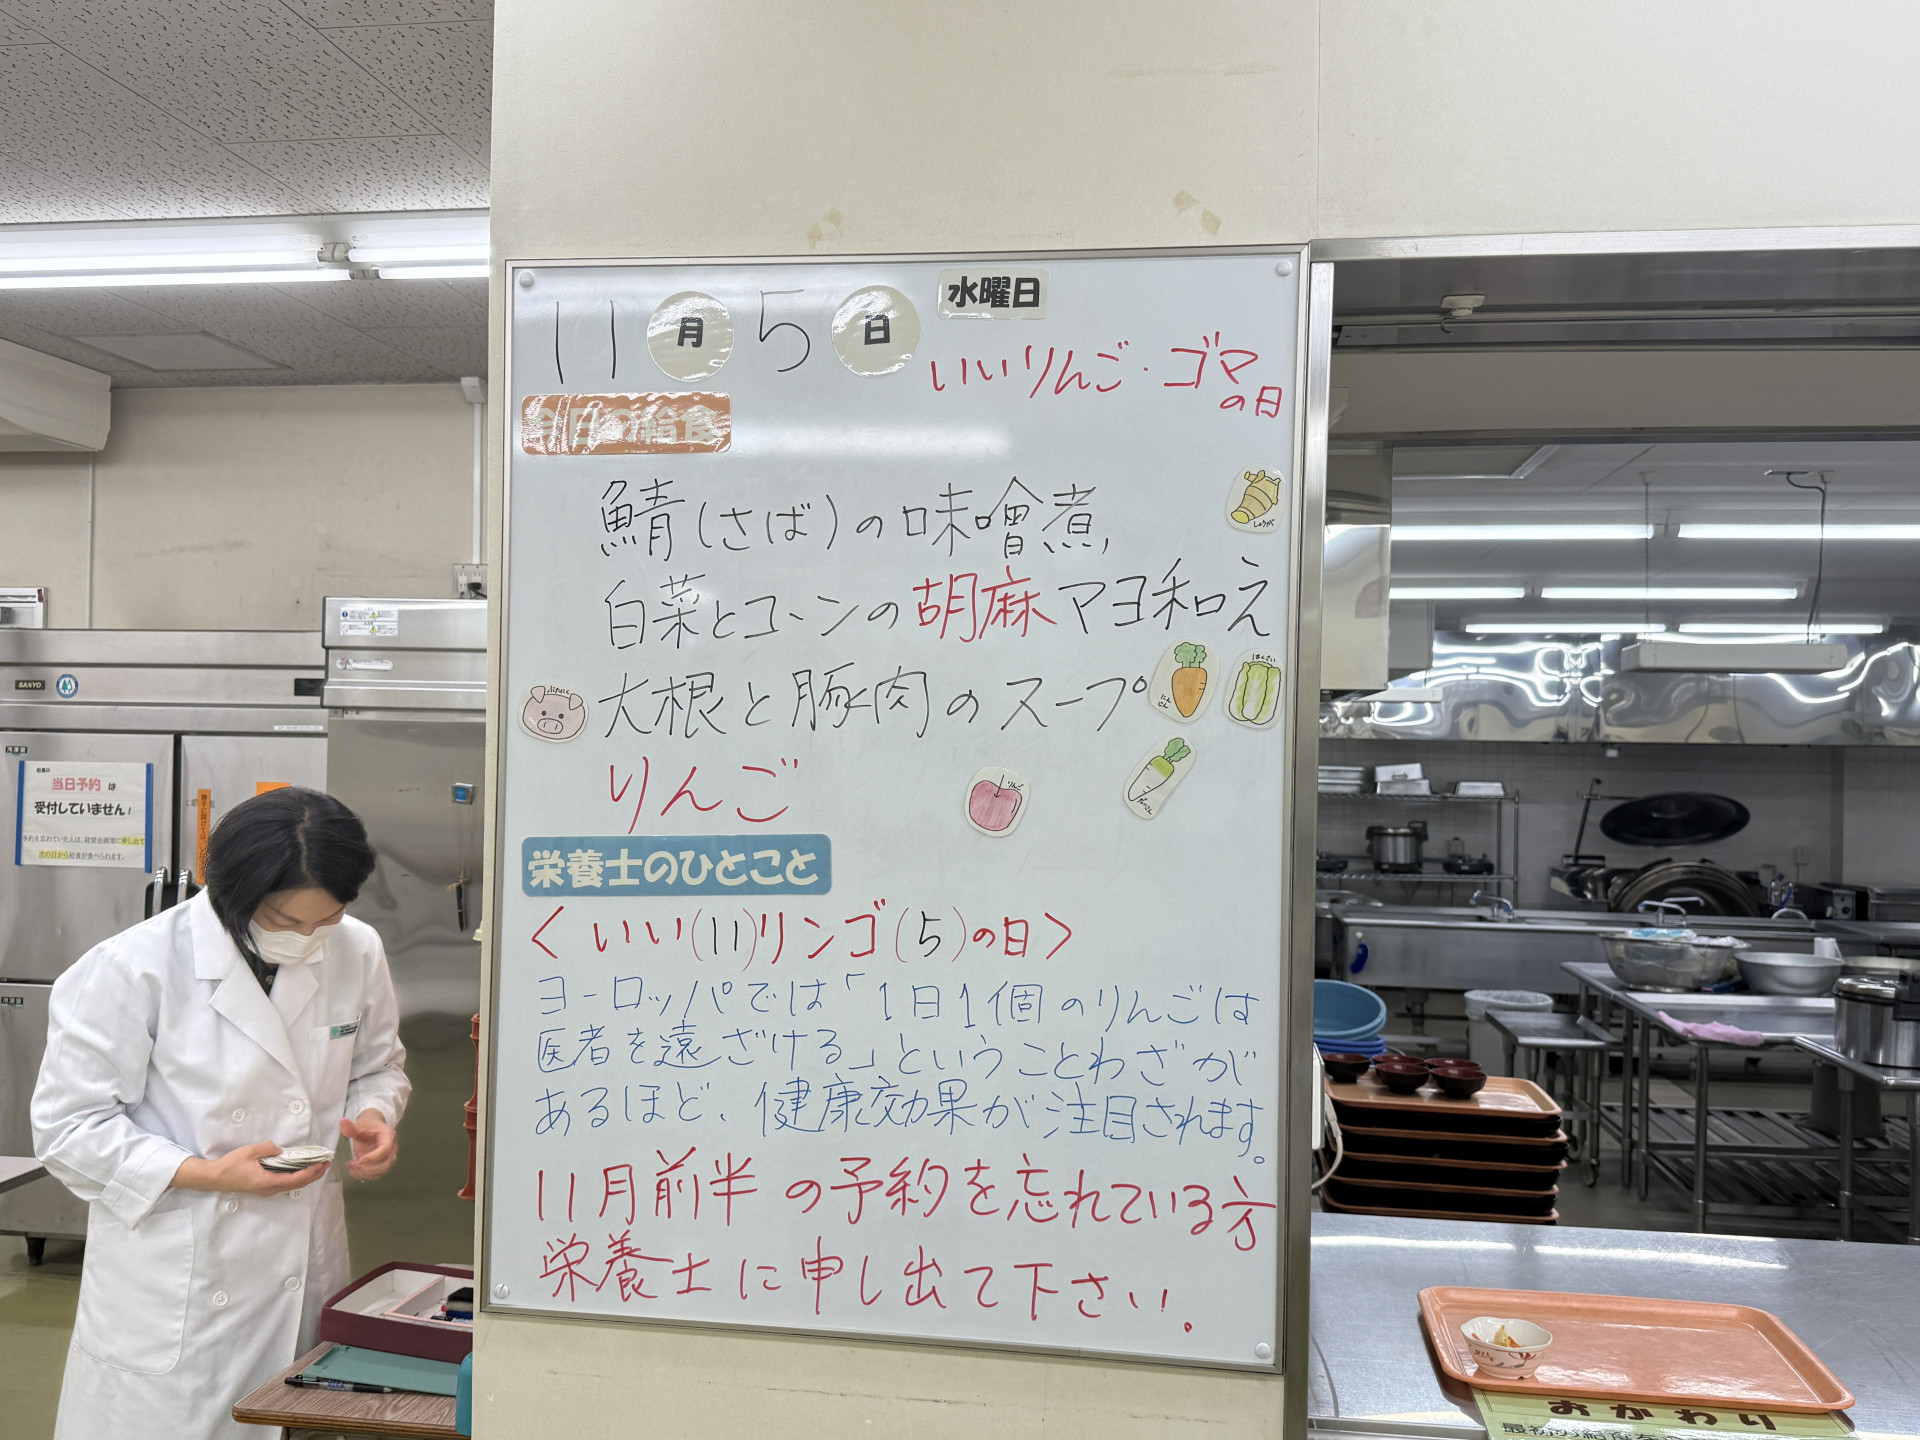 11月5日 水曜日
いいりんご・ゴマ
の日
今日の給食
鯖(さば)の味噌煮
しょうが
白菜とコーンの胡麻マヨ和え
ぶたにく
大根と豚肉のスープ
にんじん
はくさい
りんご
りんご
だいこん
栄養士のひとこと
<いい(11)リンゴ(5)の日>
ヨーロッパでは「1日1個のりんごは
医者を遠ざける」ということわざが
あるほど、健康効果が注目されます。
11月前半の予約を忘れている方
栄養士に申し出て下さい!
SANYO
当日予約は
受付していません!
予約を忘れていた人は、経営企画室に申し出て
次の日から給食が食べられます。
おかわり